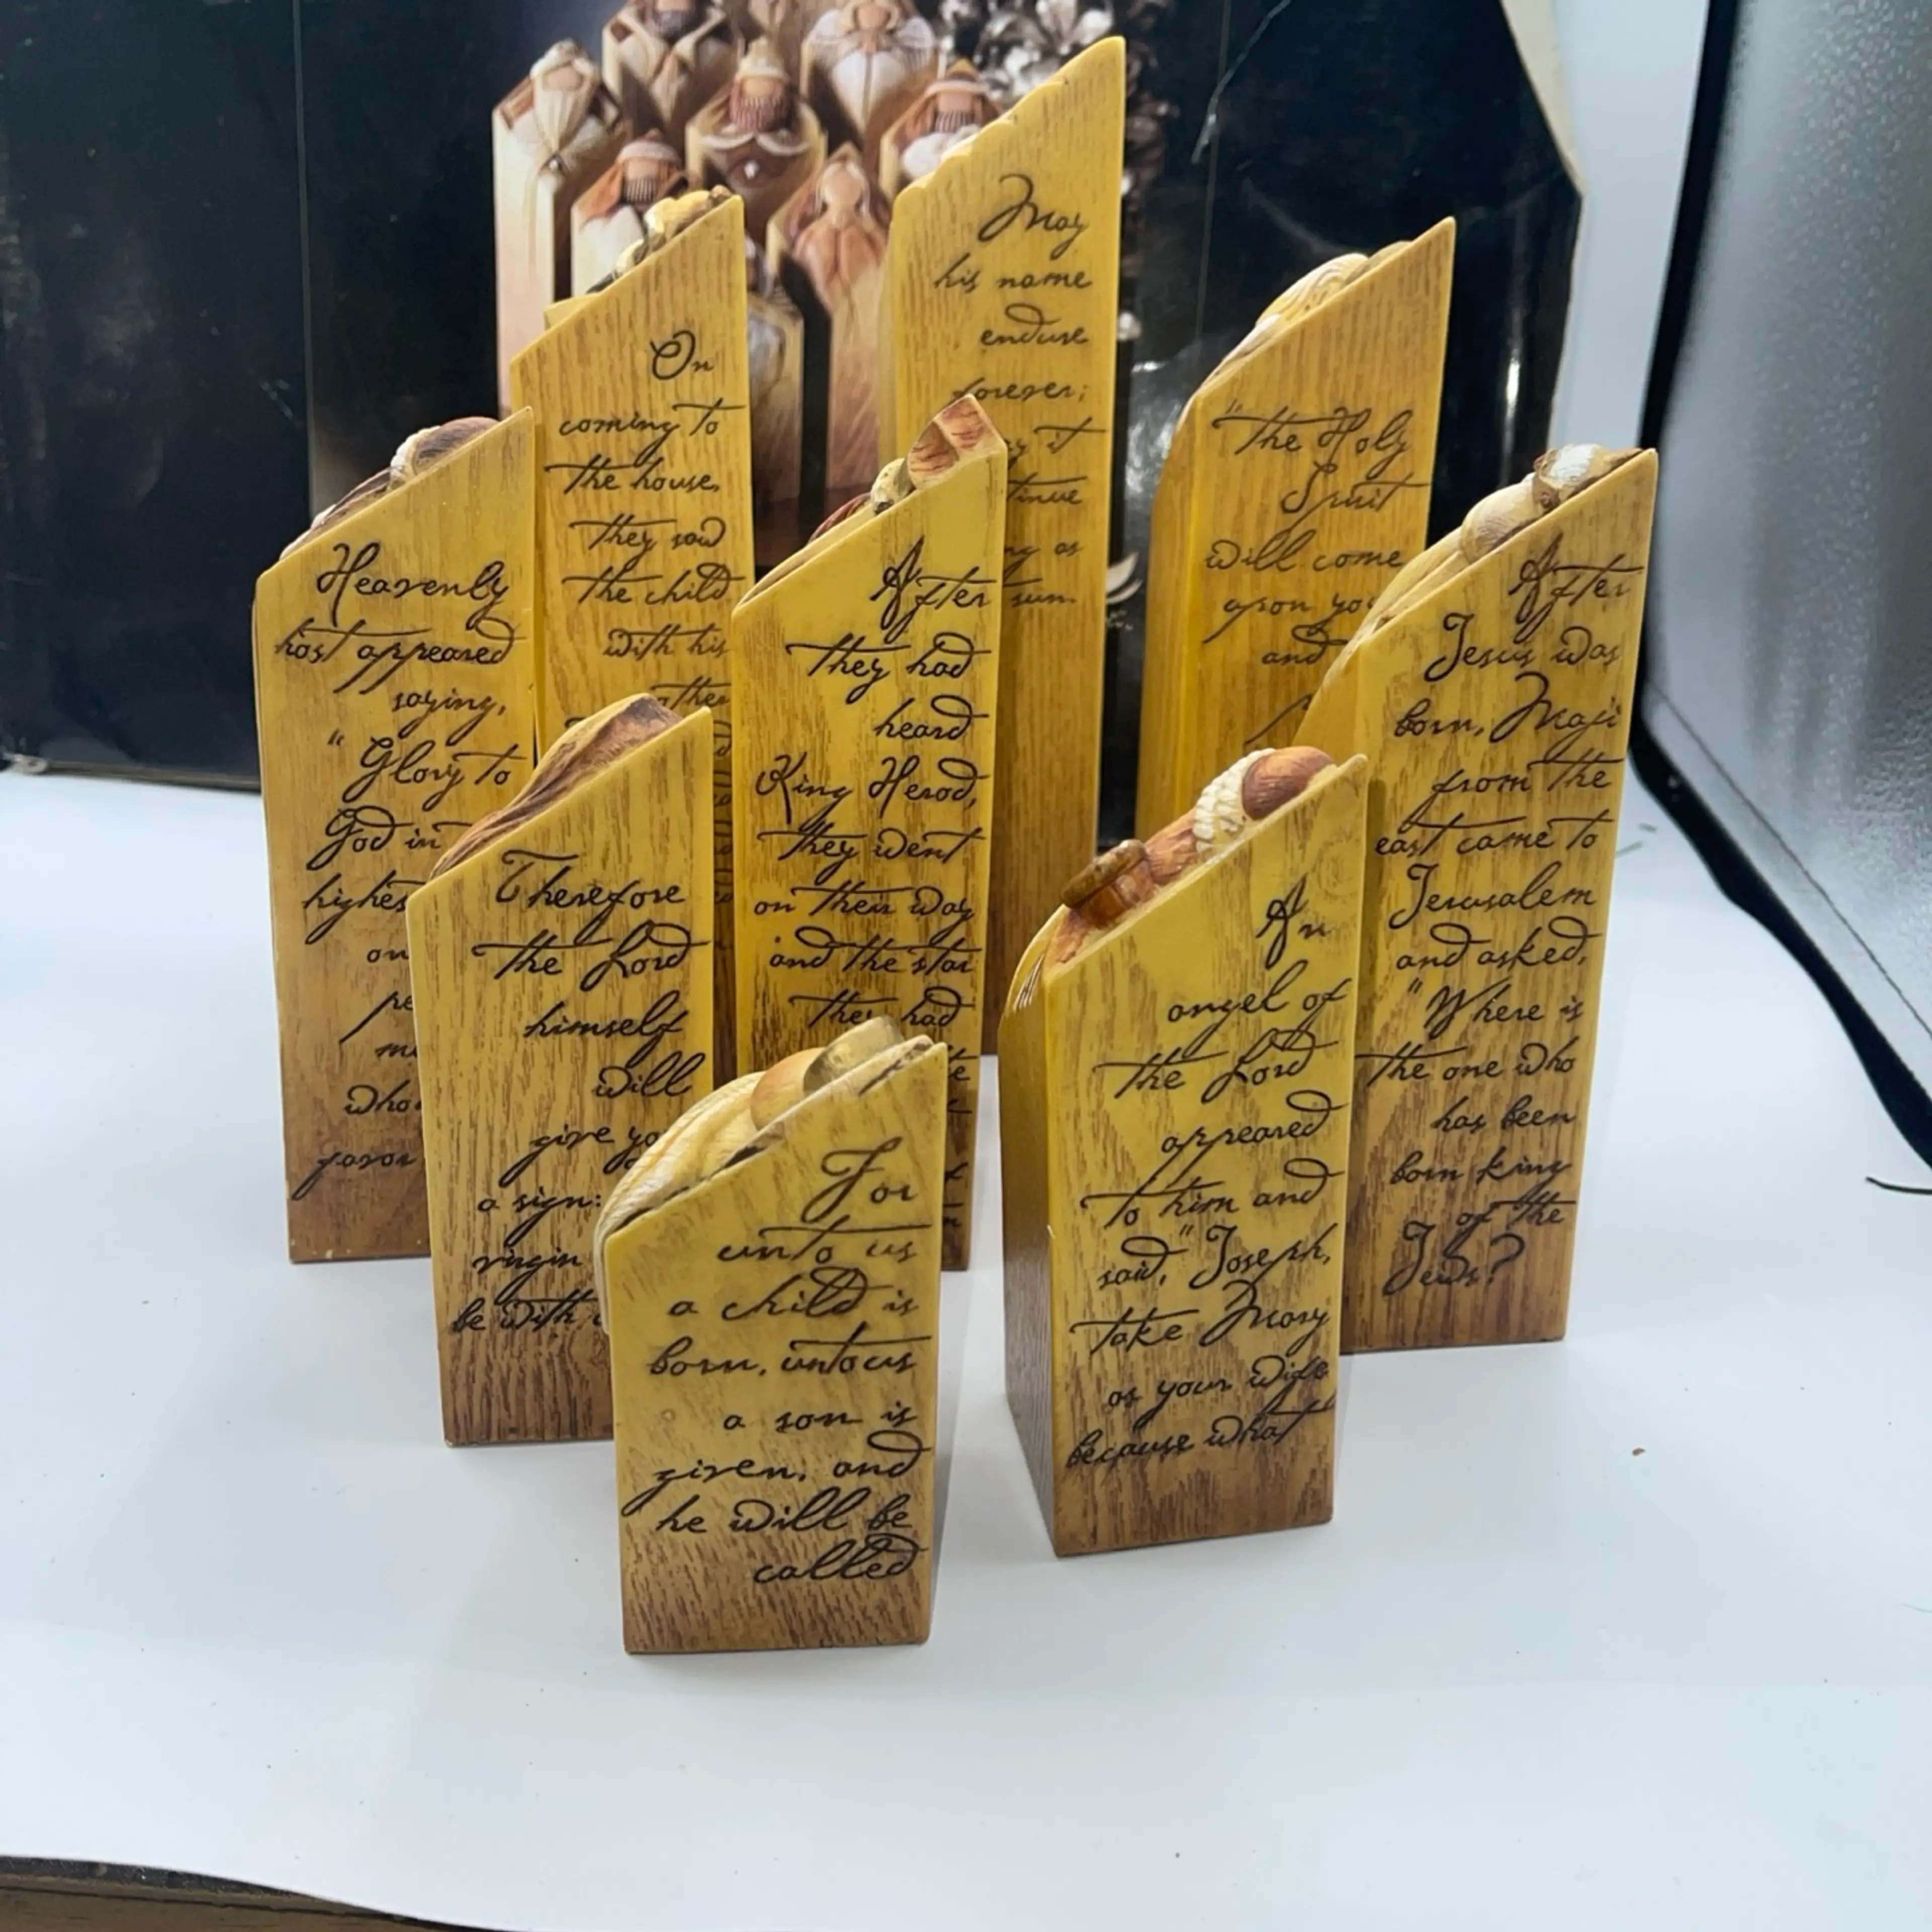 On
coming to
the house,
they saw
the child
with his
May
his name
endure
forever;
it
as
sun.
"The Holy
Spirit
will come
upon you
and
Heavenly
host appeared
saying,
"Glory to
God in
on
who
favor
After
they had
heard
King Herod,
they went
on their way
and the star
they had
After
Jesus was
born, Magi
from the
east came to
Jerusalem
and asked,
"Where is
the one who
has been
born king
of the
Jews?
Therefore
the Lord
himself
will
give
a sign:
virgin
be with
An
angel of
the Lord
appeared
to him and
said, "Joseph,
take Mary
as your wife
because what
For
unto us
a child is
born, unto us
a son is
given, and
he will be
called